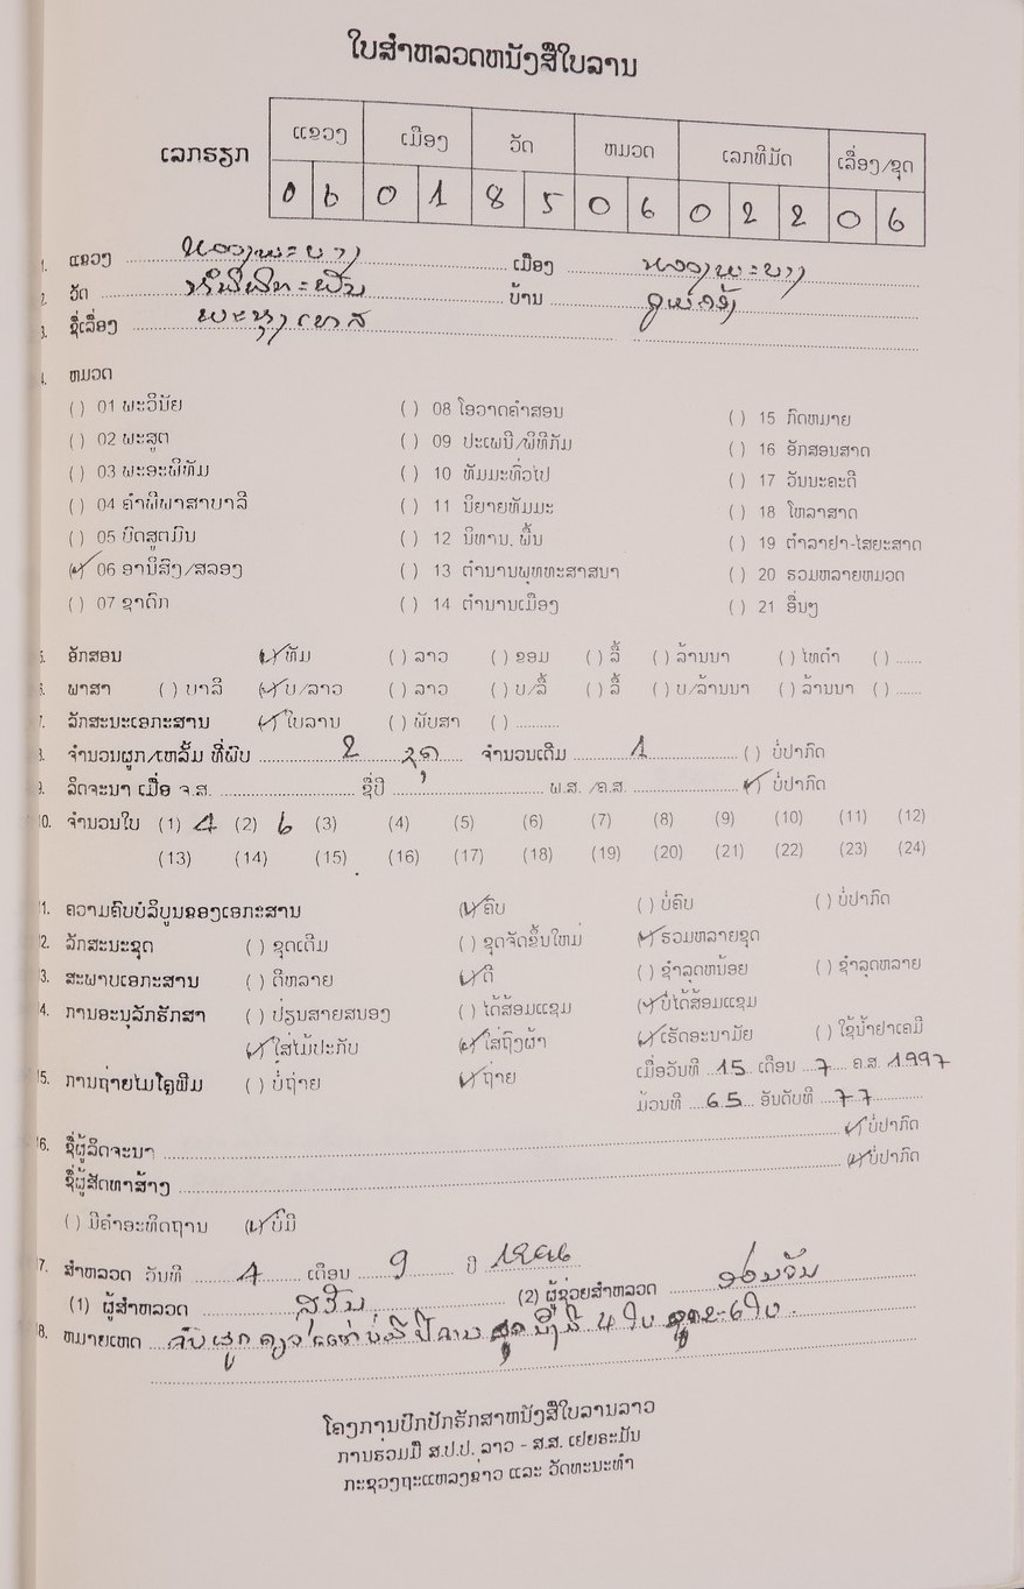 ໃບສຳຫລວດຫນັງສືໃບລານ
ເລກຮຽກ
ແຂວງ ເມືອງ ວັດ ຫມວດ ເລກທີມັດ ເລື່ອງ/ຊຸດ
0 6 0 1 8 5 0 6 0 2 2 0 6
1. ແຂວງ ຫລວງພະບາງ ເມືອງ ຫລວງພະບາງ
2. ວັດ ບ້ານ
3. ຊື່ເລື່ອງ
4. ຫມວດ
( ) 01 ພະວິນັຍ ( ) 08 ໂອວາດຄຳສອນ ( ) 15 ກົດຫມາຍ
( ) 02 ພະສູດ ( ) 09 ປະເພນີ/ພິທີກັມ ( ) 16 ອັກສອນສາດ
( ) 03 ພະອະພິທັມ ( ) 10 ທັມມະທົ່ວໄປ ( ) 17 ວັນນະຄະດີ
( ) 04 ຄຳພີພາສາບາລີ ( ) 11 ນິຍາຍທັມມະ ( ) 18 ໂຫລາສາດ
( ) 05 ບົດສູດມົນ ( ) 12 ນິທານ, ພື້ນ ( ) 19 ຕຳລາຢາ-ໄສຍະສາດ
(✓) 06 ອານິສົງ/ສລອງ ( ) 13 ຕຳນານພຸທທະສາສນາ ( ) 20 ຮວມຫລາຍຫມວດ
( ) 07 ຊາດົກ ( ) 14 ຕຳນານເມືອງ ( ) 21 ອື່ນໆ
5. ອັກສອນ (✓) ທັມ ( ) ລາວ ( ) ຂອມ ( ) ລື້ ( ) ລ້ານນາ ( ) ໄທດຳ ( ) ......
6. ພາສາ ( ) ບາລີ (✓) ບ/ລາວ ( ) ລາວ ( ) ບ/ລື້ ( ) ລື້ ( ) ບ/ລ້ານນາ ( ) ລ້ານນາ ( ) ......
7. ລັກສະນະເອກະສານ (✓) ໃບລານ ( ) ພັບສາ ( ) ..........
8. ຈຳນວນຜູກ/ເຫລັ້ມ ທີ່ພົບ 2 ຈຳນວນເຕີມ 1 ( ) ບໍ່ປາກົດ
9. ລິດຈະນາ ເມື່ອ ຈ.ສ. ຊື່ປີ ພ.ສ. /ຄ.ສ. (✓) ບໍ່ປາກົດ
10. ຈຳນວນໃບ (1) 4 (2) 6 (3) (4) (5) (6) (7) (8) (9) (10) (11) (12)
(13) (14) (15) (16) (17) (18) (19) (20) (21) (22) (23) (24)
11. ຄວາມຄົບບໍລິບູນຂອງເອກະສານ (✓) ຄົບ ( ) ບໍ່ຄົບ ( ) ບໍ່ປາກົດ
12. ລັກສະນະຊຸດ ( ) ຊຸດເດີມ ( ) ຊຸດຈັດຂຶ້ນໃຫມ່ (✓) ຮວມຫລາຍຊຸດ
13. ສະພາບເອກະສານ ( ) ດີຫລາຍ (✓) ດີ ( ) ຊຳລຸດຫນ້ອຍ ( ) ຊຳລຸດຫລາຍ
14. ການອະນຸລັກຮັກສາ ( ) ປ່ຽນສາຍສນອງ ( ) ໄດ້ສ້ອມແຊມ (✓) ບໍ່ໄດ້ສ້ອມແຊມ
(✓) ໃສ່ໄມ້ປະກັບ (✓) ໃສ່ຖົງຜ້າ (✓) ເຮັດອະນາມັຍ ( ) ໃຊ້ນ້ຳຢາເຄມີ
15. ການຖ່າຍໄມໂຄຼຟິມ ( ) ບໍ່ຖ່າຍ (✓) ຖ່າຍ ເມື່ອວັນທີ 15 ເດືອນ 7 ຄ.ສ. 1997
ມ້ວນທີ 65 ອັນດັບທີ 77
16. ຊື່ຜູ້ລິດຈະນາ (✓) ບໍ່ປາກົດ
ຊື່ຜູ້ສັດທາສ້າງ (✓) ບໍ່ປາກົດ
( ) ມີຄຳອະທິດຖານ (✓) ບໍ່ມີ
17. ສຳຫລວດ ວັນທີ 4 ເດືອນ 9 ປີ
(1) ຜູ້ສຳຫລວດ (2) ຜູ້ຊ່ວຍສຳຫລວດ
18. ຫມາຍເຫດ
ໂຄງການປົກປັກຮັກສາຫນັງສືໃບລານລາວ
ການຮ່ວມມື ສ.ປ.ປ. ລາວ - ສ.ສ. ເຢຍຣະມັນ
ກະຊວງຖະແຫລງຂ່າວ ແລະ ວັດທະນະທຳ